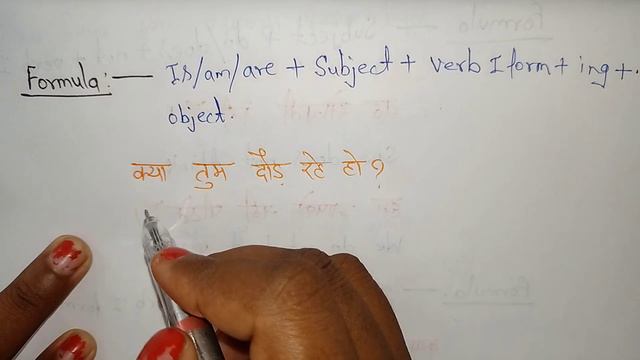 Formula:— Is/am/are + Subject + verb I form + ing +
object.
क्या तुम दौड़ रहे हो?